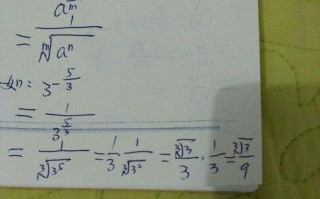 a^{n/m}
= 1/\sqrt[m]{a^n}
如: 3^{-5/3}
= 1/3^{5/3}
= 1/\sqrt[3]{3^5} = 1/3 · 1/\sqrt[3]{3^2} = \sqrt[3]{3}/3 · 1/3 = \sqrt[3]{3}/9